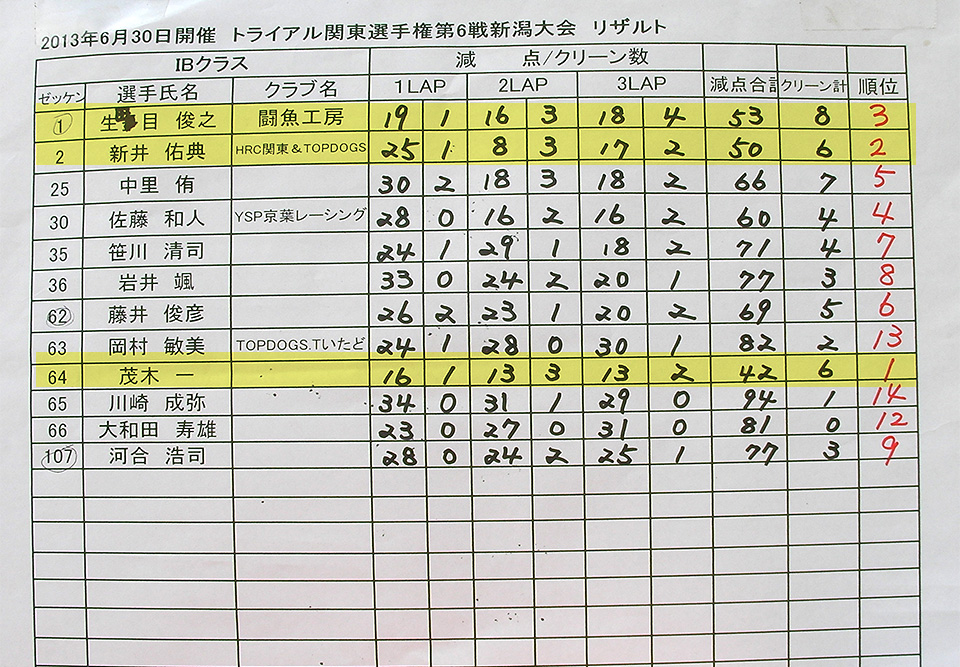 2013年6月30日開催 トライアル関東選手権第6戦新潟大会 リザルト
IBクラス 減 点/クリーン数
ゼッケン 選手氏名 クラブ名 1LAP 2LAP 3LAP 減点合計 クリーン計 順位
① 生目 俊之 闘魚工房 19 1 16 3 18 4 53 8 3
2 新井 佑典 HRC関東&TOPDOGS 25 1 8 3 17 2 50 6 2
25 中里 侑 30 2 18 3 18 2 66 7 5
30 佐藤 和人 YSP京葉レーシング 28 0 16 2 16 2 60 4 4
35 笹川 清司 24 1 29 1 18 2 71 4 7
36 岩井 颯 33 0 24 2 20 1 77 3 8
62 藤井 俊彦 26 2 23 1 20 2 69 5 6
63 岡村 敏美 TOPDOGS.Tいたど 24 1 28 0 30 1 82 2 13
64 茂木 一 16 1 13 3 13 2 42 6 1
65 川崎 成弥 34 0 31 1 29 0 94 1 14
66 大和田 寿雄 23 0 27 0 31 0 81 0 12
107 河合 浩司 28 0 24 2 25 1 77 3 9